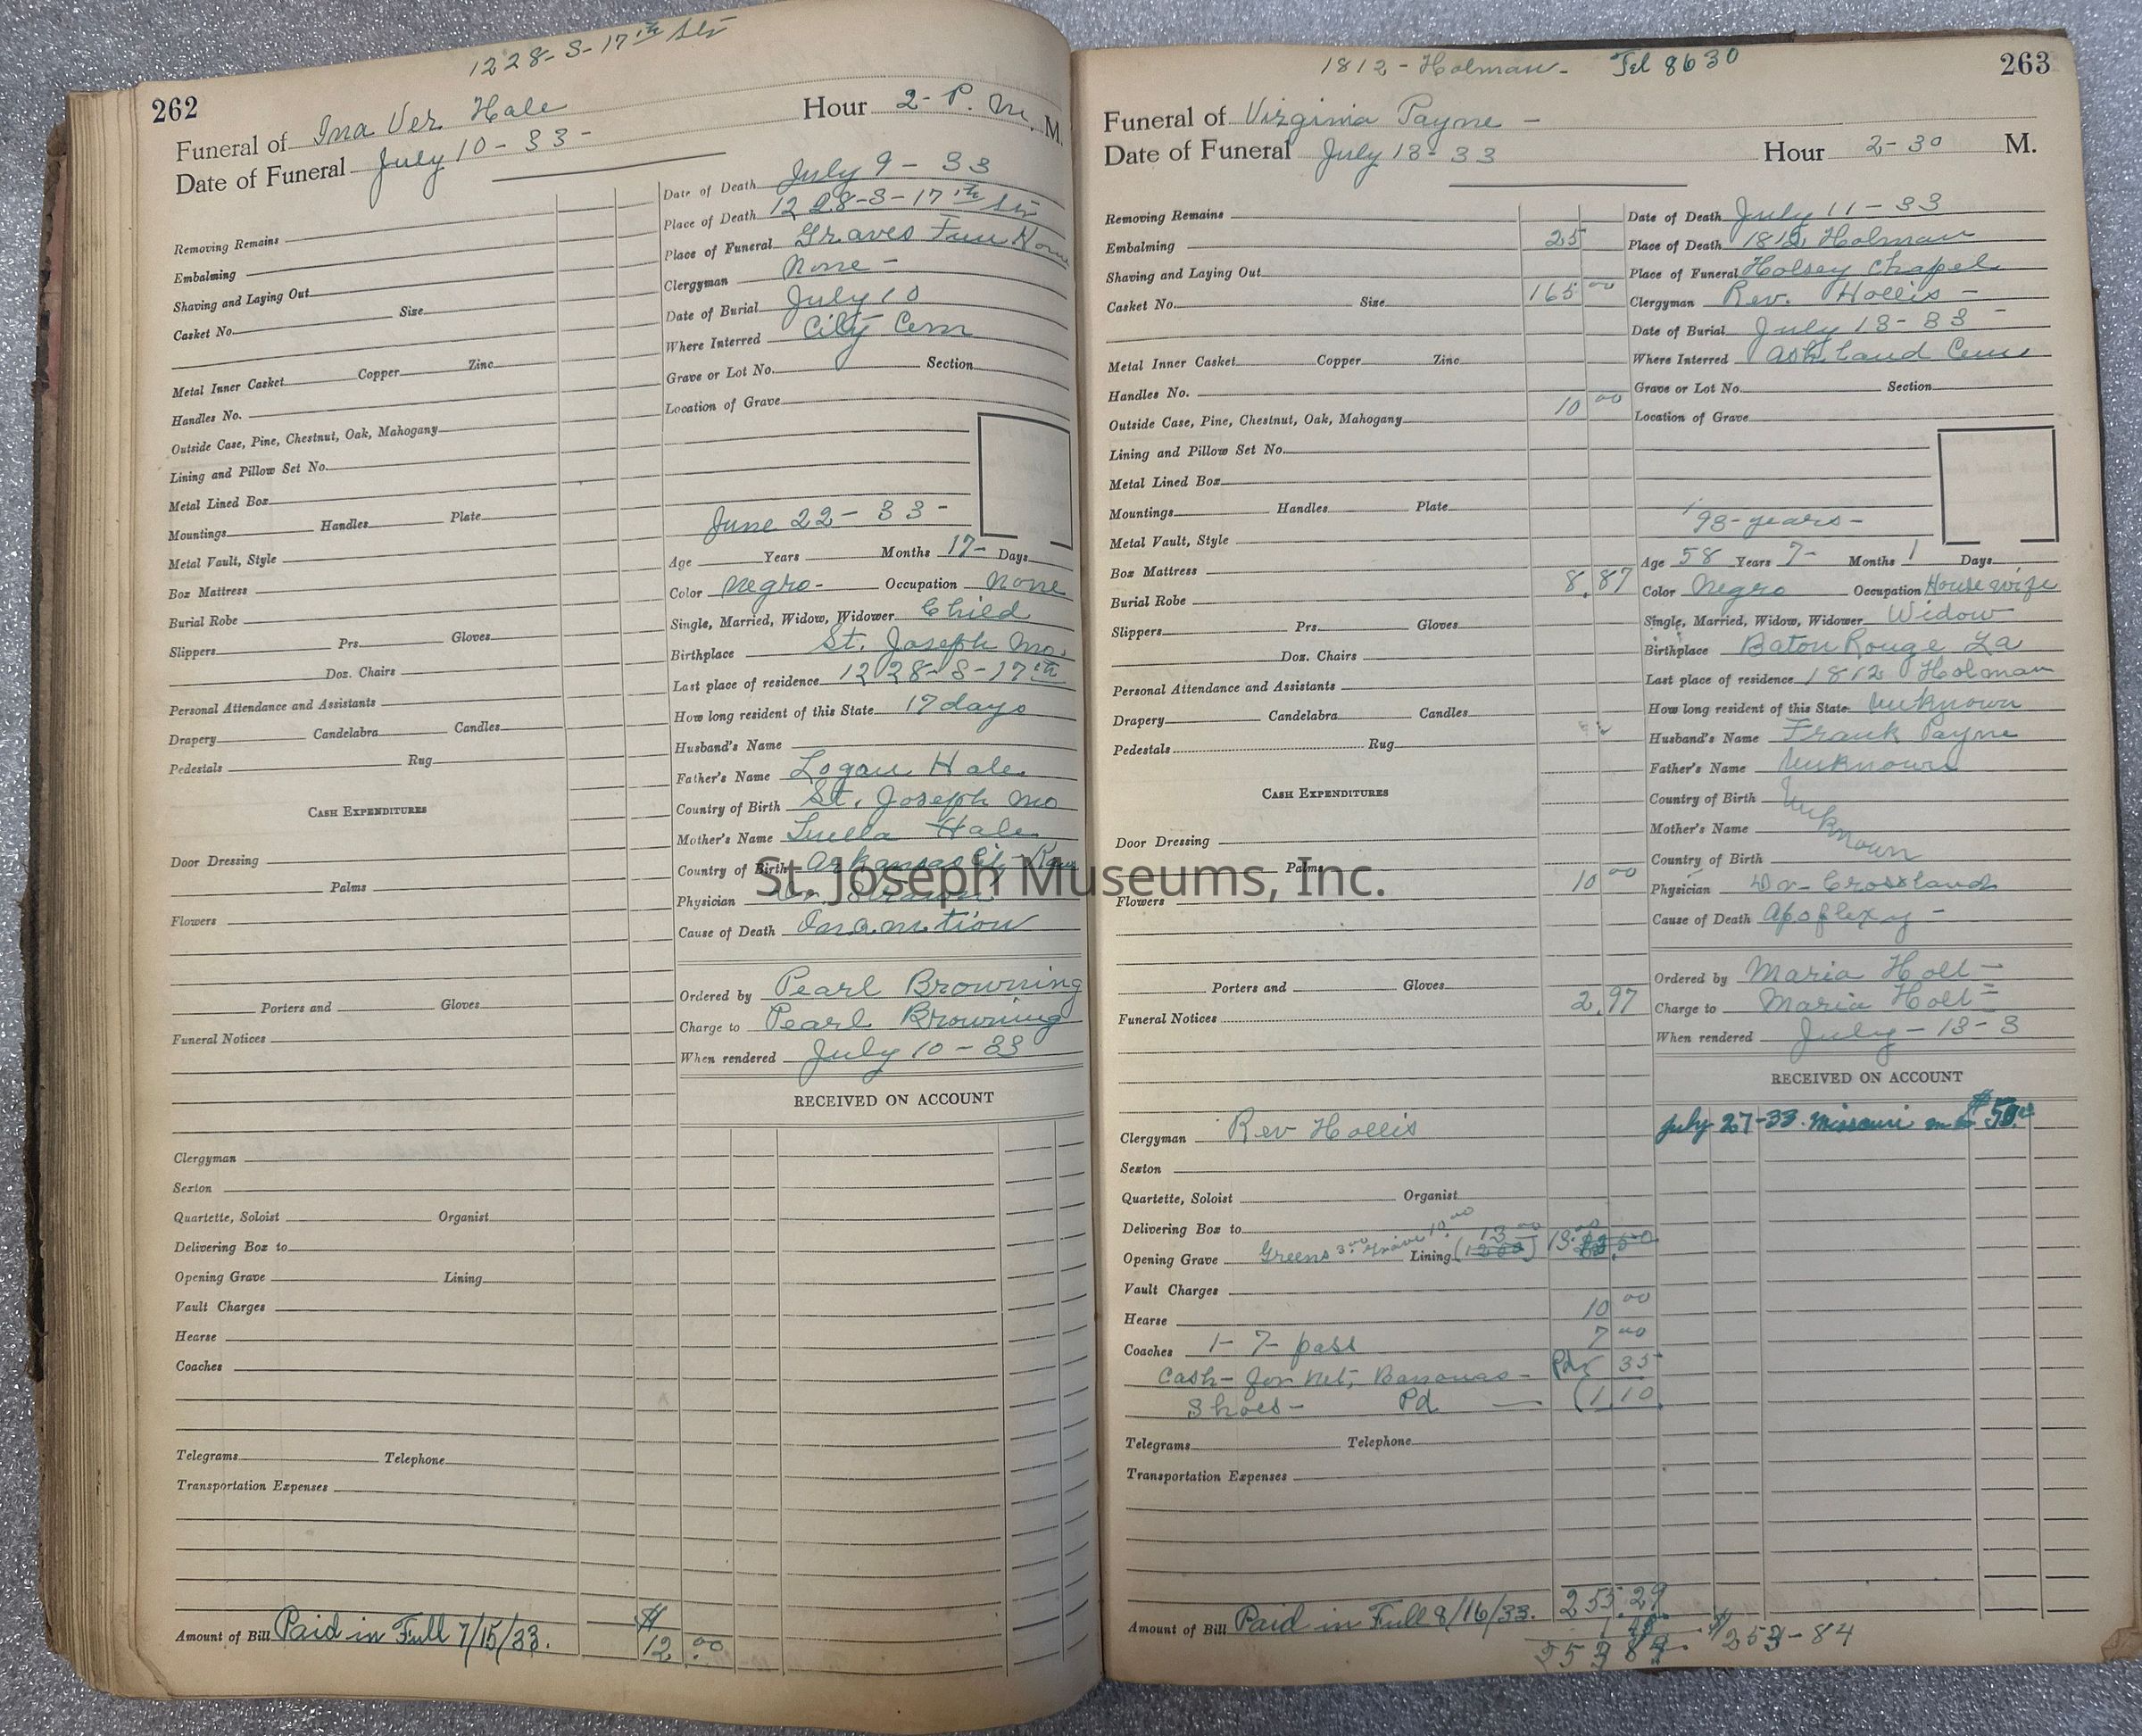 1228-S-17th Str
262
Funeral of Ina Ver Hale
Hour 2- P. M. M.
Date of Funeral July 10 - 33 -
Removing Remains
Embalming
Shaving and Laying Out
Casket No. Size
Metal Inner Casket Copper Zinc
Handles No.
Outside Case, Pine, Chestnut, Oak, Mahogany
Lining and Pillow Set No.
Metal Lined Box
Mountings Handles Plate
Metal Vault, Style
Box Mattress
Burial Robe
Slippers Prs. Gloves
Doz. Chairs
Personal Attendance and Assistants
Drapery Candelabra Candles
Pedestals Rug
CASH EXPENDITURES
Door Dressing
Palms
Flowers
Porters and Gloves
Funeral Notices
Clergyman
Sexton
Quartette, Soloist Organist
Delivering Box to
Opening Grave Lining
Vault Charges
Hearse
Coaches
Telegrams Telephone
Transportation Expenses
Amount of Bill Paid in Full 7/15/33. $12.00
Date of Death July 9 - 33
Place of Death 1228-S-17th Str
Place of Funeral Graves Fun Home
Clergyman None -
Date of Burial July 10
Where Interred City Cem
Grave or Lot No. Section
Location of Grave
June 22 - 33 -
Age Years Months 17- Days
Color Negro- Occupation None
Single, Married, Widow, Widower Child
Birthplace St. Joseph Mo
Last place of residence 1228-S-17th
How long resident of this State 17 days
Husband's Name
Father's Name Logan Hale
Country of Birth St. Joseph Mo
Mother's Name Luella Hale
Country of Birth Arkansas City Kan
Physician Dr.
Cause of Death Inanition
Ordered by Pearl Browning
Charge to Pearl Browning
When rendered July 10 - 33
RECEIVED ON ACCOUNT
1812 - Holman - Tel 8630
263
Funeral of Virginia Payne -
Date of Funeral July 13 - 33 Hour 2-30 M.
Removing Remains
Embalming 25
Shaving and Laying Out
Casket No. Size 165 00
Metal Inner Casket Copper Zinc
Handles No.
Outside Case, Pine, Chestnut, Oak, Mahogany 10 00
Lining and Pillow Set No.
Metal Lined Box
Mountings Handles Plate
Metal Vault, Style
Box Mattress
Burial Robe 8.87
Slippers Prs. Gloves
Doz. Chairs
Personal Attendance and Assistants
Drapery Candelabra Candles
Pedestals Rug
CASH EXPENDITURES
Door Dressing
Palms
Flowers 10 00
Porters and Gloves
Funeral Notices 2.97
Clergyman Rev Hollis
Sexton
Quartette, Soloist Organist
Delivering Box to
Opening Grave Greens 3.00 Grave 10.00 Lining 13.00 13.00
Vault Charges
Hearse 10 00
Coaches 1- 7- pass 7 00
Cash- for Net, - Pd 35
Shoes - Pd (1.10
Telegrams Telephone
Transportation Expenses
Amount of Bill Paid in Full 8/16/33. 255.29
$253-84
Date of Death July 11 - 33
Place of Death 1812 Holman
Place of Funeral Holsey Chapel
Clergyman Rev. Hollis -
Date of Burial July 13 - 33 -
Where Interred Ashland Cem
Grave or Lot No. Section
Location of Grave
'93-years-
Age 58 Years 7- Months 1 Days
Color Negro Occupation Housewife
Single, Married, Widow, Widower Widow
Birthplace Baton Rouge La
Last place of residence 1812 Holman
How long resident of this State Unknown
Husband's Name Frank Payne
Father's Name Unknown
Country of Birth Unknown
Mother's Name
Country of Birth
Physician Dr- Crossland
Cause of Death Apoplexy -
Ordered by Maria Holt -
Charge to Maria Holt =
When rendered July - 13 - 3
RECEIVED ON ACCOUNT
July 27-33. Missouri $50.00
St. Joseph Museums, Inc.